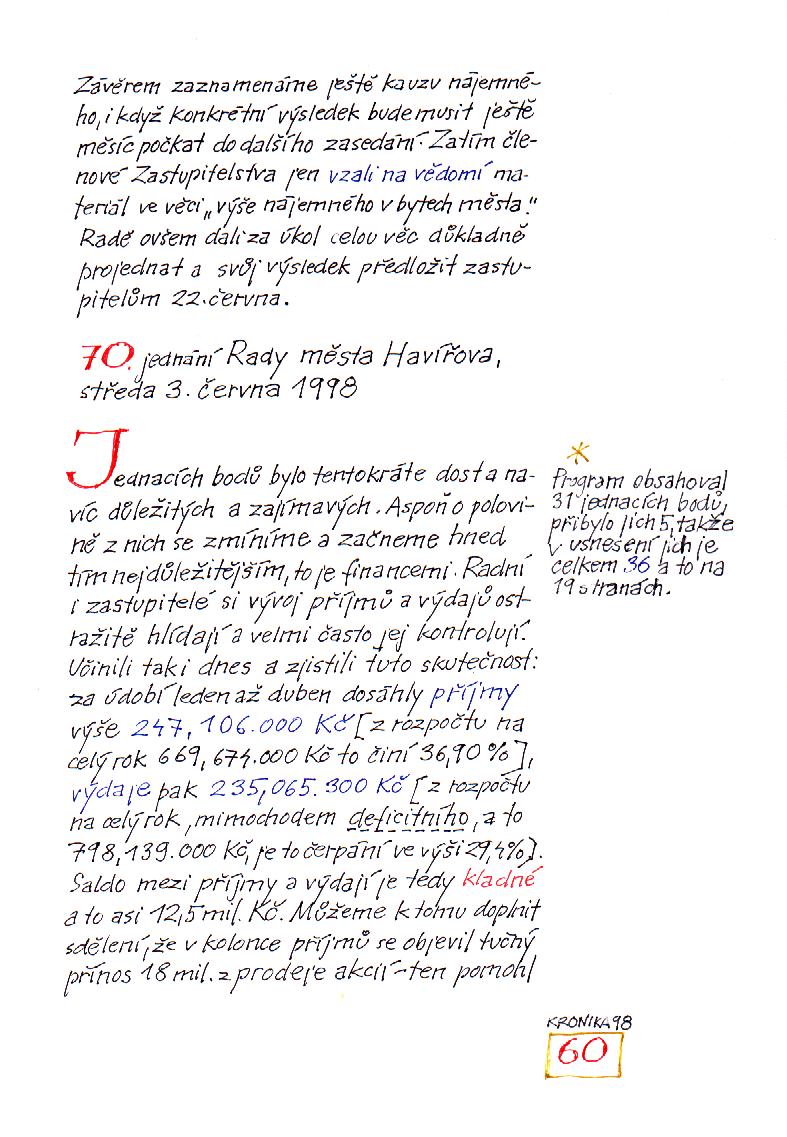 Závěrem zaznamenáme ještě kauzu nájemné-
ho, i když konkrétní výsledek bude musit ještě
měsíc počkat do dalšího zasedání. Zatím čle-
nové Zastupitelstva jen vzali na vědomí ma-
teriál ve věci „výše nájemného v bytech města."
Radě ovšem dali za úkol celou věc důkladně
projednat a svůj výsledek předložit zastu-
pitelům 22. června.
70. jednání Rady města Havířova,
středa 3. června 1998
Jednacích bodů bylo tentokráte dost a na-
víc důležitých a zajímavých. Aspoň o polovi-
ně z nich se zmíníme a začneme hned
tím nejdůležitějším, to je financemi. Radní
i zastupitelé si vývoj příjmů a výdajů ost-
ražitě hlídají a velmi často jej kontrolují.
Učinili tak i dnes a zjistili tuto skutečnost:
za údobí leden až duben dosáhly příjmy
výše 247,106.000 Kč [z rozpočtu na
celý rok 669,674.000 Kč to činí 36,90 %],
výdaje pak 235,065.300 Kč [z rozpočtu
na celý rok, mimochodem deficitního, a to
798,139.000 Kč, je to čerpání ve výši 29,4%].
Saldo mezi příjmy a výdaji je tedy kladné
a to asi 12,5 mil. Kč. Můžeme k tomu doplnit
sdělení, že v kolonce příjmů se objevil tučný
přínos 18 mil. z prodeje akcií - ten pomohl
*
Program obsahoval
31 jednacích bodů,
přibylo jich 5, takže
v usnesení jich je
celkem 36 a to na
19 stranách.
KRONIKA 98
60